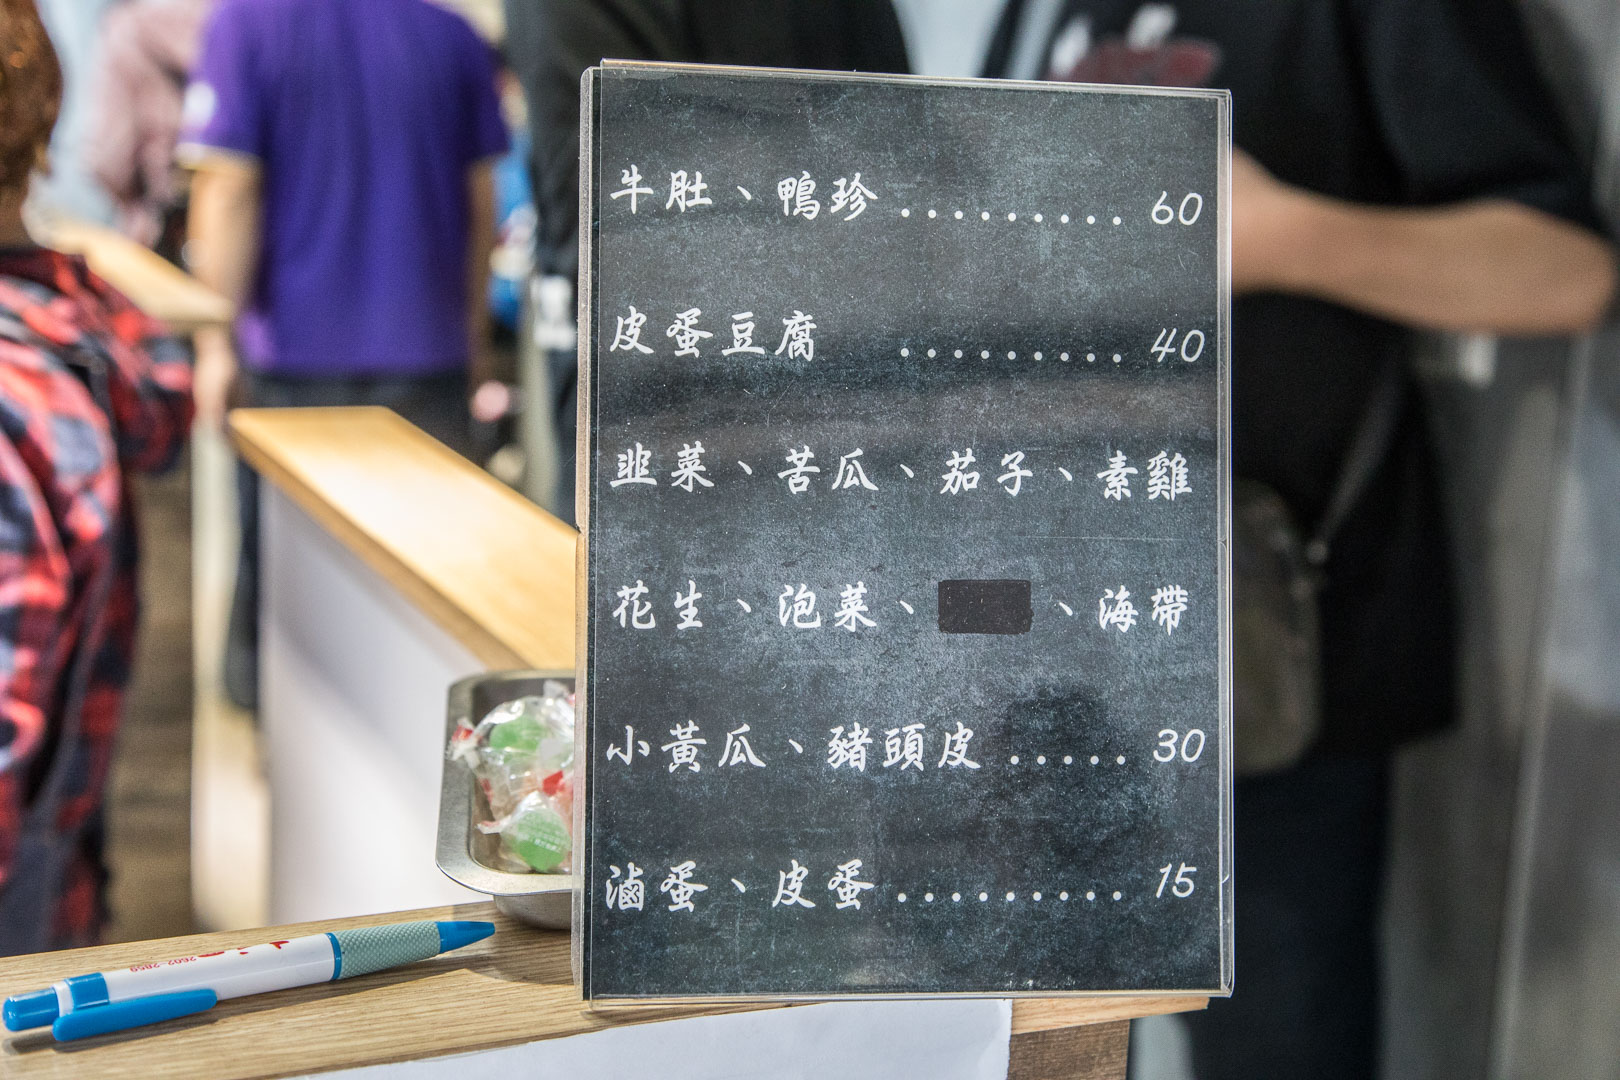 牛肚、鴨珍 ......... 60
皮蛋豆腐 ......... 40
韭菜、苦瓜、茄子、素雞
花生、泡菜、 、海帶
小黃瓜、豬頭皮 ..... 30
滷蛋、皮蛋 ......... 15
2602-2859